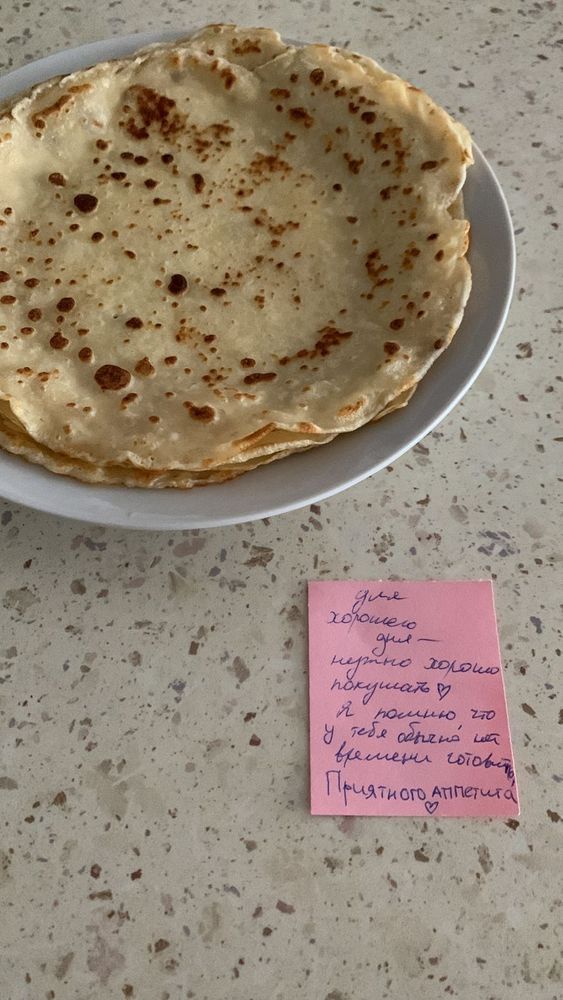 для
хорошего
дня —
нужно хорошо
покушать♡
Я помню, что
у тебя обычно нет
времени готовить,
Приятного аппетита
♡